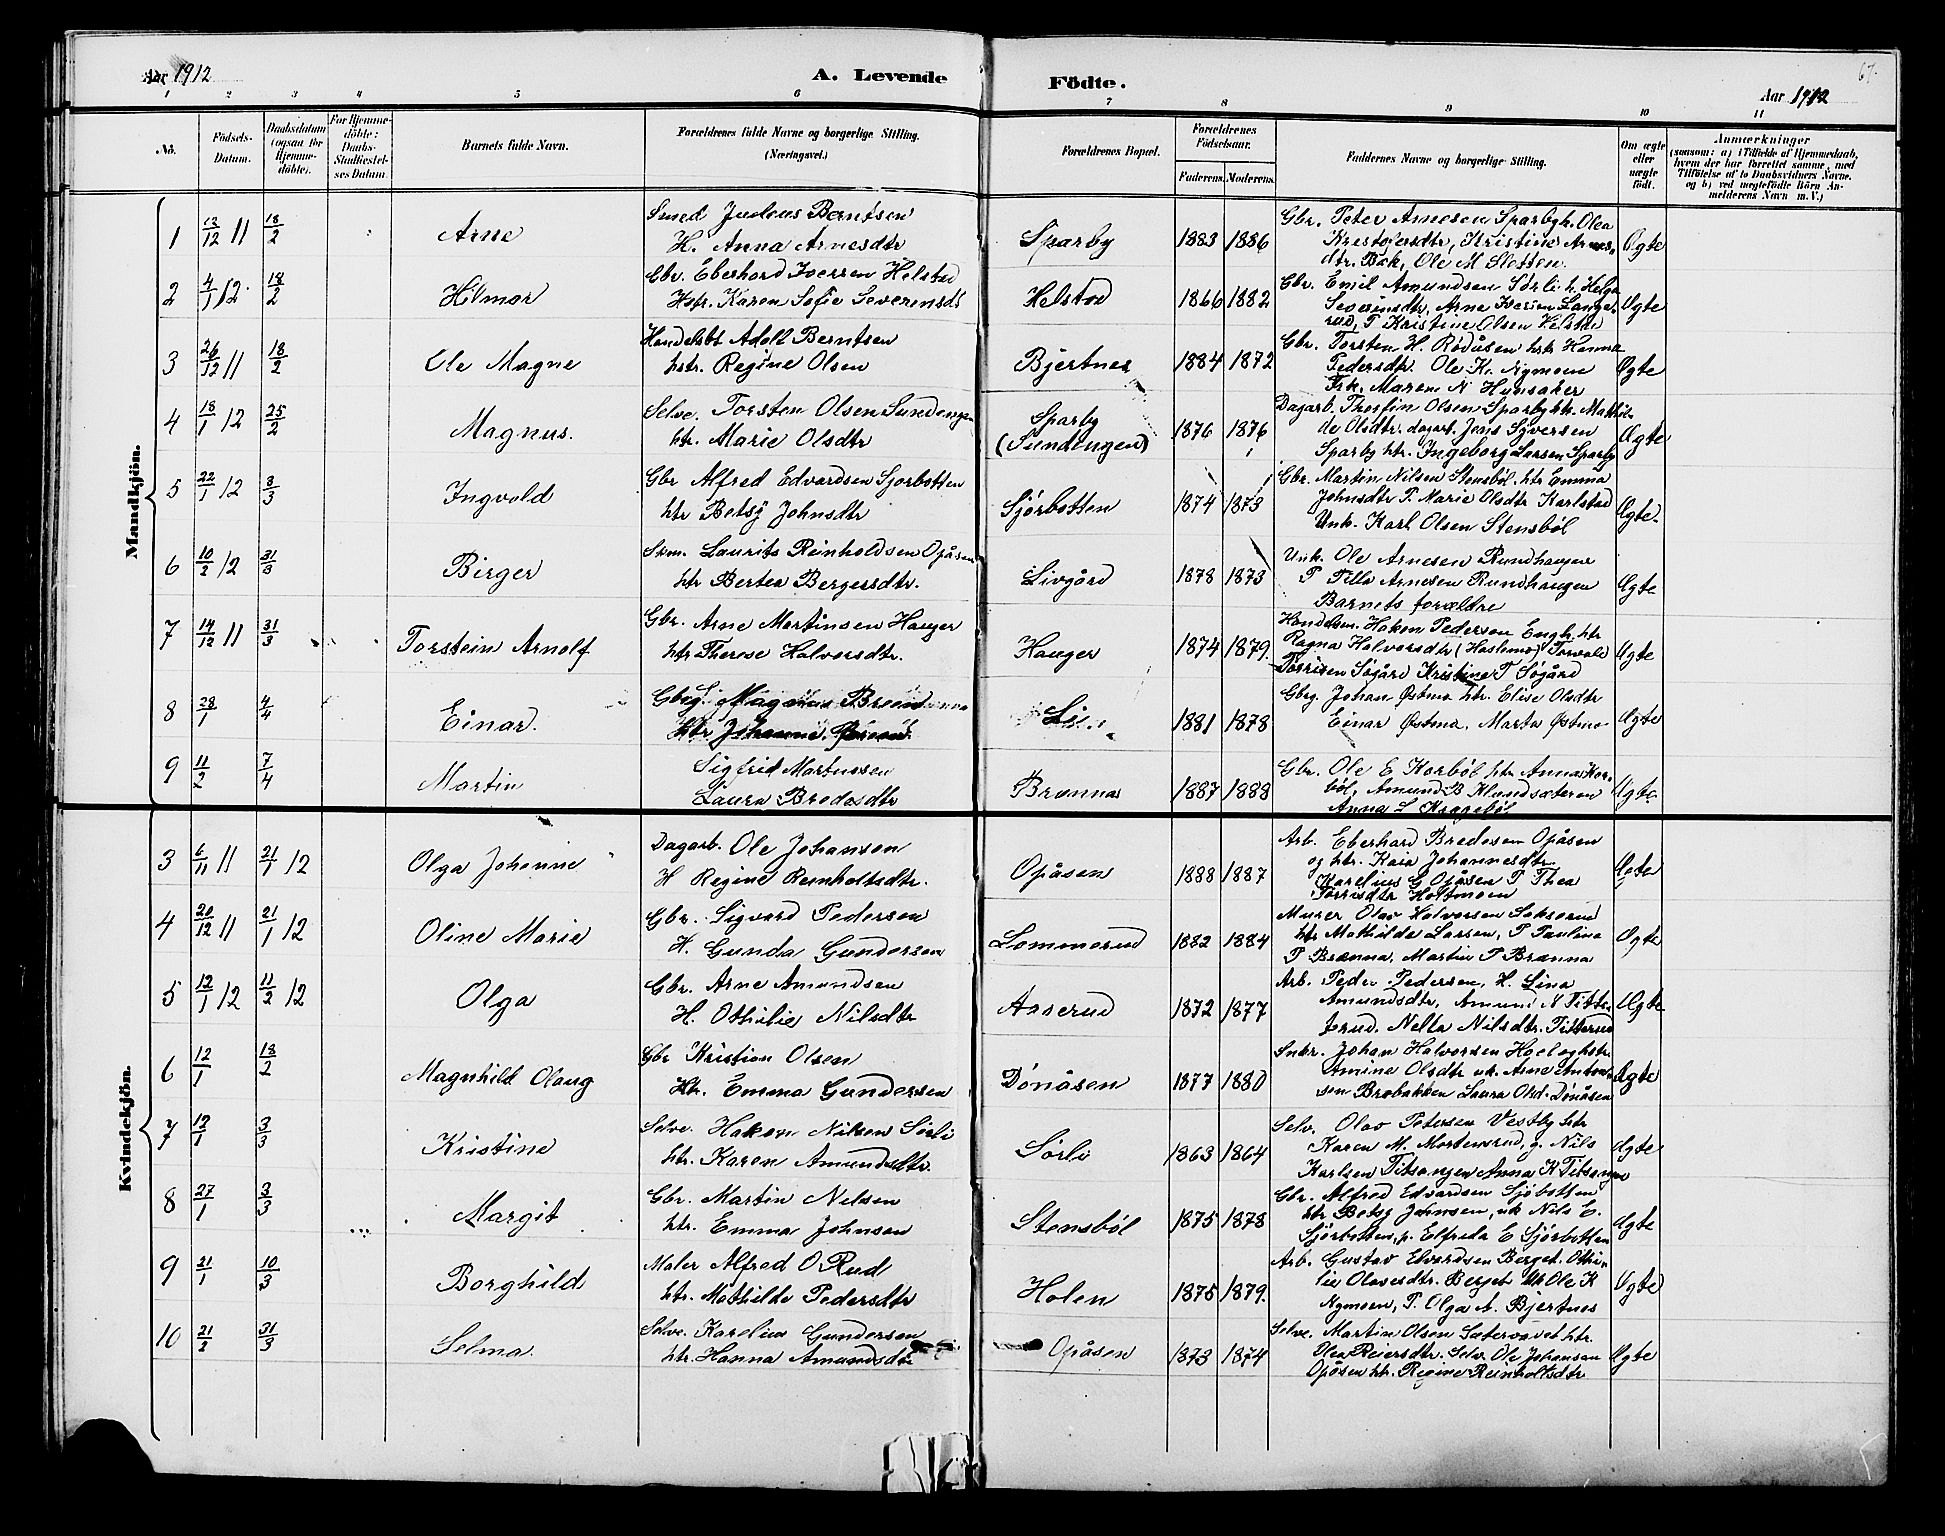 Aar 1912
A. Levende Födte.
Aar 1912
67.
1 2 3 4 5 6 7 8 9 10 11
No.
Födsels-Datum.
Daabsdatum (ogsaa for Hjemme-döbte).
For Hjemme-döbte: Daabs-Stadfæstel-ses Datum.
Barnets fulde Navn.
Forældrenes fulde Navne og borgerlige Stilling.
(Næringsvei.)
Forældrenes Bopæl.
Forældrenes Födselsaar.
Faderens. Moderens.
Faddernes Navne og borgerlige Stilling.
Om ægte eller uægte født.
Anmærkninger
(saasom: a) i Tilfælde af Hjemmedaab, hvem der har forrettet samme, med Tilföielse af to Daabsvidners Navne. og b) ved uægtefödte Börn An-melderens Navn m. V.)
Mandkjön.
1 13/12 11 18/2 Arne
Smed Julius Berntsen
H. Anna Arnesdtr
Sparby 1883 1886
Gbr. Peter Arnesen Sparby h. Olea
Kristofersdtr, Kristine Arnes-
dtr. Bak, Ole M Sletten.
Ægte
2 4/1 12 18/2 Hilmar
Gbr. Eberhard Iversen Helstad
Hstr. Karen Sofie Severinsdt
Helstad 1866 1882
Gbr. Emil Amundsen Sørli h. Helga
Severinsdtr, Arne Iversen Lange-
rud, P Kristine Olsen Helstad
Ægte
3 26/12 11 18/2 Ole Magne
Handelsbt Adolf Berntsen
hstr. Regine Olsen
Bjertnes 1884 1872
Gbr. Torsten H. Rødusen hstr Hanna
Pedersdtr. Ole K. Nymoen
Frk. Maren N Hunsaker
Ægte
4 18/1 12 25/2 Magnus.
Selve. Torsten Olsen Sundengen
htr. Marie Olsdtr
Sparby
(Sundengen) 1876 1876
Dagarb. Thorfin Olsen Sparby htr. Mathil-
de Olsdtr. dagarb. Jens Syversen
Sparby htr. Ingeborg Larsen Sparby
Ægte
5 22/1 12 3/3 Ingvald
Gbr Alfred Edvardsen Sjørbotten
htr Betsy Johnsdtr
Sjørbotten 1874 1873
Gbr. Martin Nilsen Stensbøl. htr Emma
Johnsdtr P. Marie Olsdtr Karlstad
Unk. Karl Olsen Stensbøl
Ægte
6 10/2 12 31/3 Birger
Skm. Laurits Reinholdsen Opåsen
htr Bertea Bergersdtr.
Livgård 1878 1873
Unk. Ole Arnesen Rundhaugen
P Tilla Arnesen Rundhaugen
Barnets forældre
Ægte
7 14/12 11 31/3 Torstein Arnolf
Gbr. Arne Martinsen Hauger
htr Therese Halvorsdtr.
Hauger 1874 1879.
Handelsm. Håkon Pedersen Engh. htr
Ragna Halvorsdtr (Haslemo) Torvald
Torrisen Søgård Kristine T Søgård
Ægte
8 28/1 4/4 Einar.
Gbrg. Magnus
htr Johanne
1881 1878
Gbrg Johan Østmo htr. Elise Olsdtr
Einar Østmo, Marta Østmo
Ægte
9 11/2 7/4 Martin
Sigfrid Martinsen
Laura Bredesdtr
Brænna 1887 1888
Gbr. Ole E Korbøl htr Anna Kor-
bøl, Amund B Klundsæteren
Anna L Kragebøl
Ægte
Kvindekjön.
3 6/11 11 21/1 12 Olga Johanne
Dagarb. Ole Johansen
H Regine Reinholtsdtr.
Opåsen 1888 1887
Arb. Eberhard Bredesen Opåsen
og htr. Kaia Johannesdtr
Karelius G Opåsen P Thea
Torrisdtr Holtmoen
Ægte
4 20/12 11 21/1 12 Oline Marie
Gbr. Sigvard Pedersen
H. Gunda Gundersen
Lommerud 1882 1884
Murer Olav Halvorsen Sakserud
htr Mathilde Larsen, P Pauline
P Brænna, Martin P Brænna
Ægte
5 12/1 12 11/2 12 Olga
Gbr. Arne Amundsen
H. Othilie Nilsdtr
Aaserud 1872 1877
Arb. Peder Pedersen, H. Lina
Amundsdtr, Amund N Titte-
rud. Nelta Nilsdtr. Titterud
Ægte
6 12/1 18/2 Magnhild Olaug
Gbr Kristian Olsen
Htr. Emma Gundersen
Dönåsen 1877 1880
Snkr. Johan Halvorsen Hoel og hstr.
Amine Olsdtr uk. Arne Anton-
sen Brobakken Laura Olsd. Dönåsen
Ægte
7 12/1 3/3 Kristine
Selve. Håkon Nilsen Sørli
htr. Karen Amundsdtr.
Sørli 1863 1864
Selv. Olav Petersen Vestby htr
Karen M. Mortensrud, g. Nils
Karlsen Titsangen Anna K Titsangen
Ægte
8 27/1 3/3 Margit
Gbr. Martin Nilsen
htr. Emma Johnsen
Stensbøl 1875 1878
Gbr. Alfred Edvardsen Sjøbotten
htr Betsy Johnsen, uk Nils E.
Sjørbotten, p. Elfrida E Sjørbotten
Ægte
9 21/1 10/3 Borghild
Maler Alfred O Rud
htr. Mathilde Pedersdtr
Holen 1875 1879.
Arb. Gustav Edvardsen Berget. Othi-
lie Olavesdtr. Berget Uk Ole K
Nymoen, P. Olga A. Bjertnes
Ægte
10 21/2 31/3 Selma.
Selve. Karelius Gundersen
htr. Hanna Amundsdtr
Opåsen 1873 1874
Selve. Martin Olsen Sætersavet htr.
Olea Reiersdtr. Selv. Ole Johansen
Opåsen htr. Regine Reinholtsdtr
Ægte